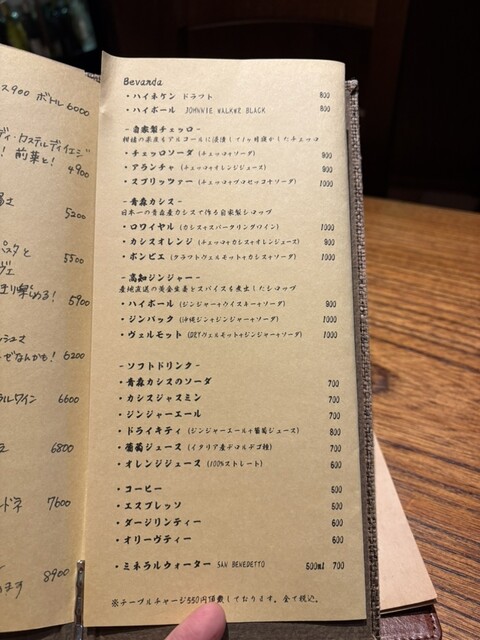 ス900 ボトル6000
4900
5200
5500
5900
6200
6600
6800
7600
8900
Bevanda
・ハイネケン ドラフト 800
・ハイボール JOHNNIE WALKWR BLACK 800
-自家製チェッロ-
柑橘の果皮をアルコールに浸漬して1ヶ月寝かしたチェッロ
・チェッロソーダ (チェッロ+ソーダ) 900
・アランチャ (チェッロ+オレンジジュース) 900
・スプリッツァー (チェッロ+プロセッコ+ソーダ) 1000
-青森カシス-
日本一の青森産カシスで作る自家製シロップ
・ロワイヤル (カシス+スパークリングワイン) 1000
・カシスオレンジ (チェッロ+カシス+オレンジジュース) 900
・ポンピエ (クラフトヴェルモット+カシス+ソーダ) 1000
-高知ジンジャー-
産地直送の黄金生姜とスパイスを煮出したシロップ
・ハイボール (ジンジャー+ウイスキー+ソーダ) 900
・ジンバック (沖縄ジン+ジンジャー+ソーダ) 1000
・ヴェルモット (DRYヴェルモット+ジンジャー+ソーダ) 1000
-ソフトドリンク-
・青森カシスのソーダ 700
・カシスジャスミン 700
・ジンジャーエール 700
・ドライキティ (ジンジャーエール+葡萄ジュース) 800
・葡萄ジュース (イタリア産ドロルデゴ種) 700
・オレンジジュース (100%ストレート) 600
・コーヒー 500
・エスプレッソ 500
・ダージリンティー 600
・オリーヴティー 600
・ミネラルウォーター SAN BENEDETTO 500ml 700
※テーブルチャージ550円頂戴しております。全て税込。